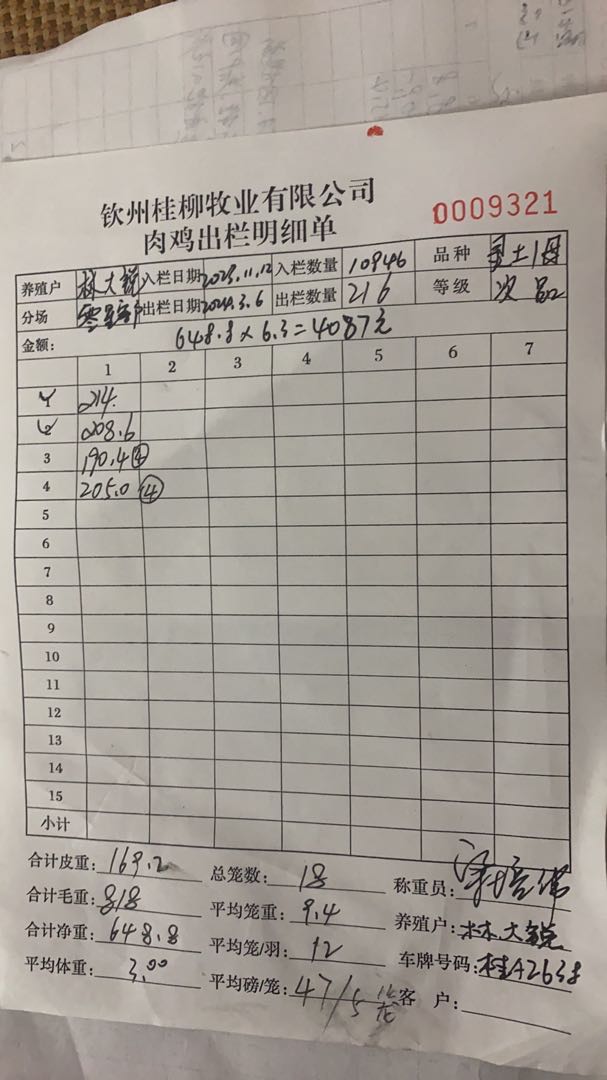 钦州桂柳牧业有限公司
0009321
肉鸡出栏明细单
养殖户 林大锐 入栏日期 2023.11.12 入栏数量 10946 品种 土1母
分场 零星部 出栏日期 2024.3.6 出栏数量 216 等级 次品
金额: 648.8×6.3=4087元
1 2 3 4 5 6 7
1 214.
2 208.6
3 190.4④
4 205.0④
5
6
7
8
9
10
11
12
13
14
15
小计
合计皮重: 169.2 总笼数: 18 称重员:
合计毛重: 818 平均笼重: 9.4 养殖户: 林大锐
合计净重: 648.8 平均笼/羽: 12 车牌号码: 桂A2638
平均体重: 3.00 平均磅/笼: 47/5笼 客 户: